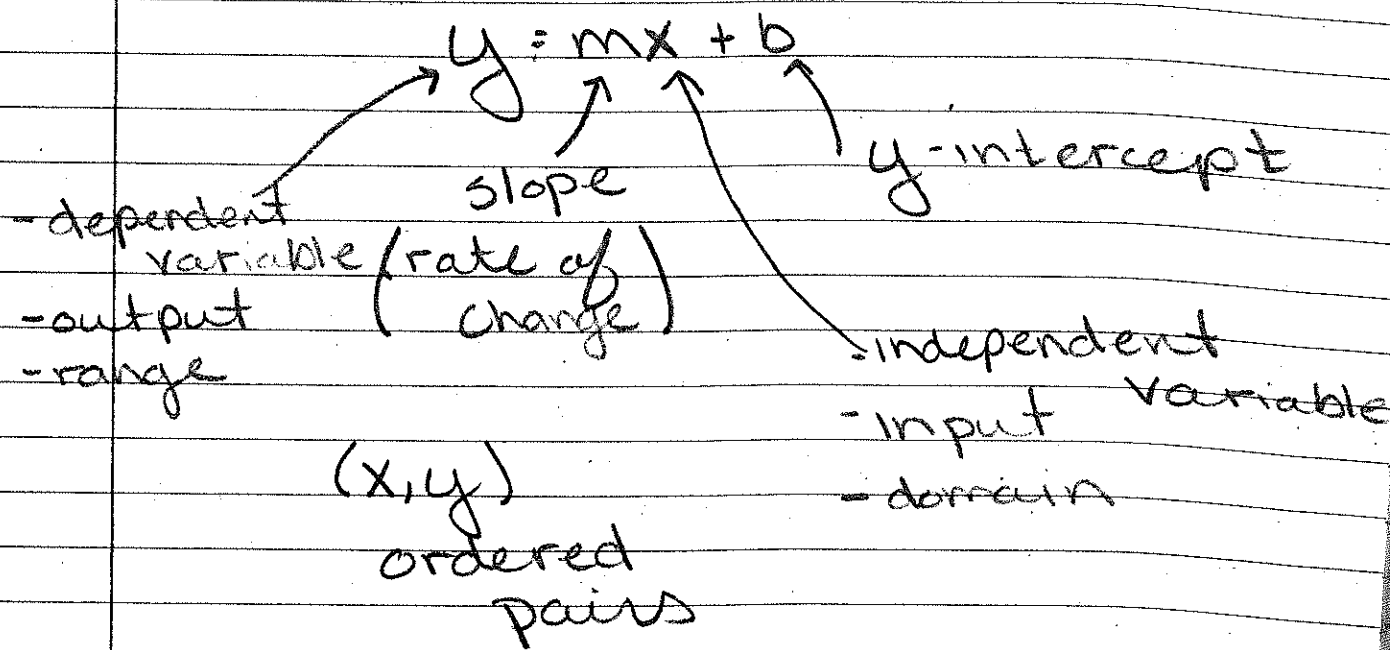 y = mx + b
y-intercept
slope
(rate of
change)
- dependent
variable
- output
- range
- independent
variable
- input
- domain
(x,y)
ordered
pairs